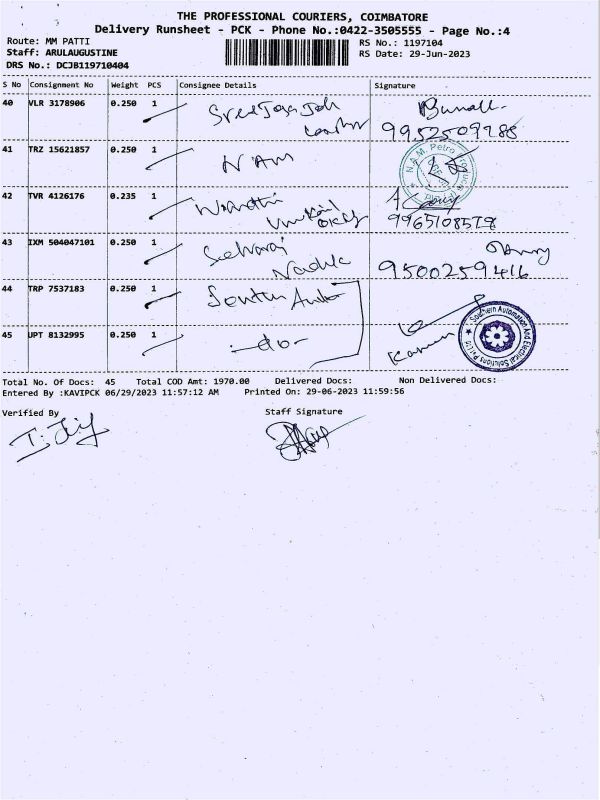 THE PROFESSIONAL COURIERS, COIMBATORE
Delivery Runsheet - PCK - Phone No.:0422-3505555 - Page No.:4
Route: MM PATTI
RS No.: 1197104
Staff: ARULAUGUSTINE
RS Date: 29-Jun-2023
DRS No.: DCJB119710404
S No Consignment No Weight PCS Consignee Details Signature
40 VLR 3178906 0.250 1
9952509788
41 TRZ 15621857 0.250 1 NAM
N.A.M. Petro
42 TVR 4126176 0.235 1
9965108578
43 IXM 504047101 0.250 1 Selvaraj
9500259416
44 TRP 7537183 0.250 1
45 UPT 8132995 0.250 1 -do-
Southern Automation And Electrical Solutions Pvt Ltd
Total No. Of Docs: 45 Total COD Amt: 1970.00 Delivered Docs: Non Delivered Docs:
Entered By :KAVIPCK 06/29/2023 11:57:12 AM Printed On: 29-06-2023 11:59:56
Verified By Staff Signature